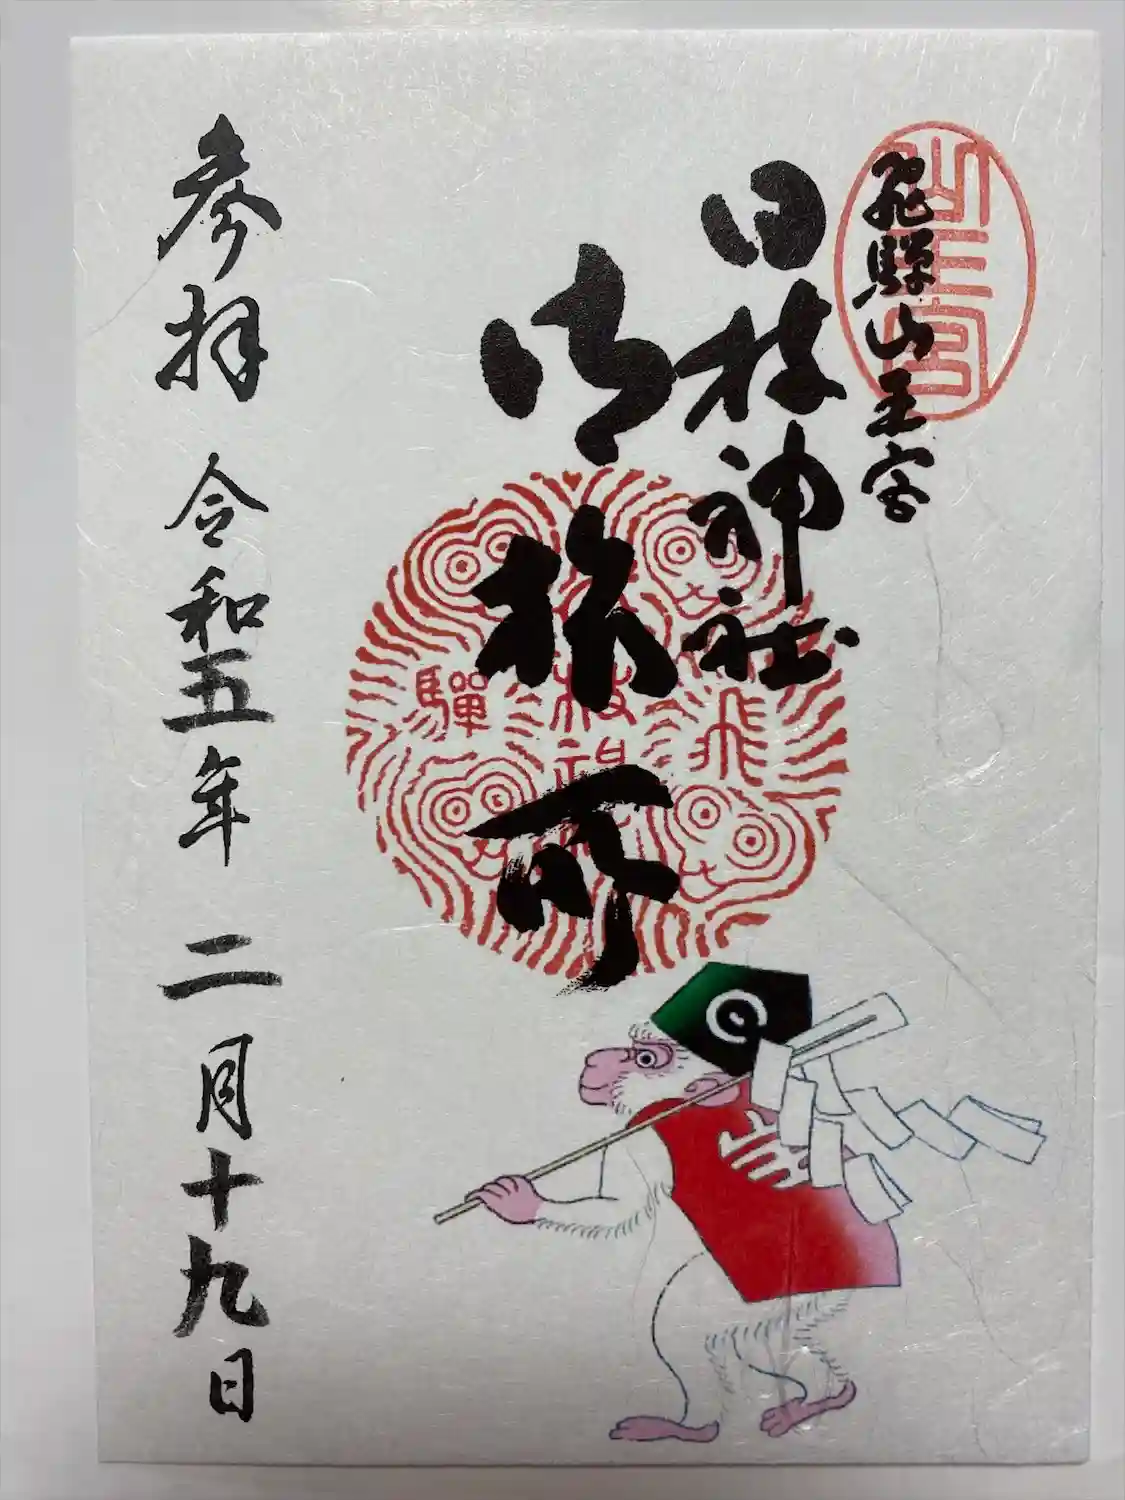 飛騨山王宮
山王宮
日枝神社
御旅所
飛驒
枝神
参拝 令和五年 二月十九日